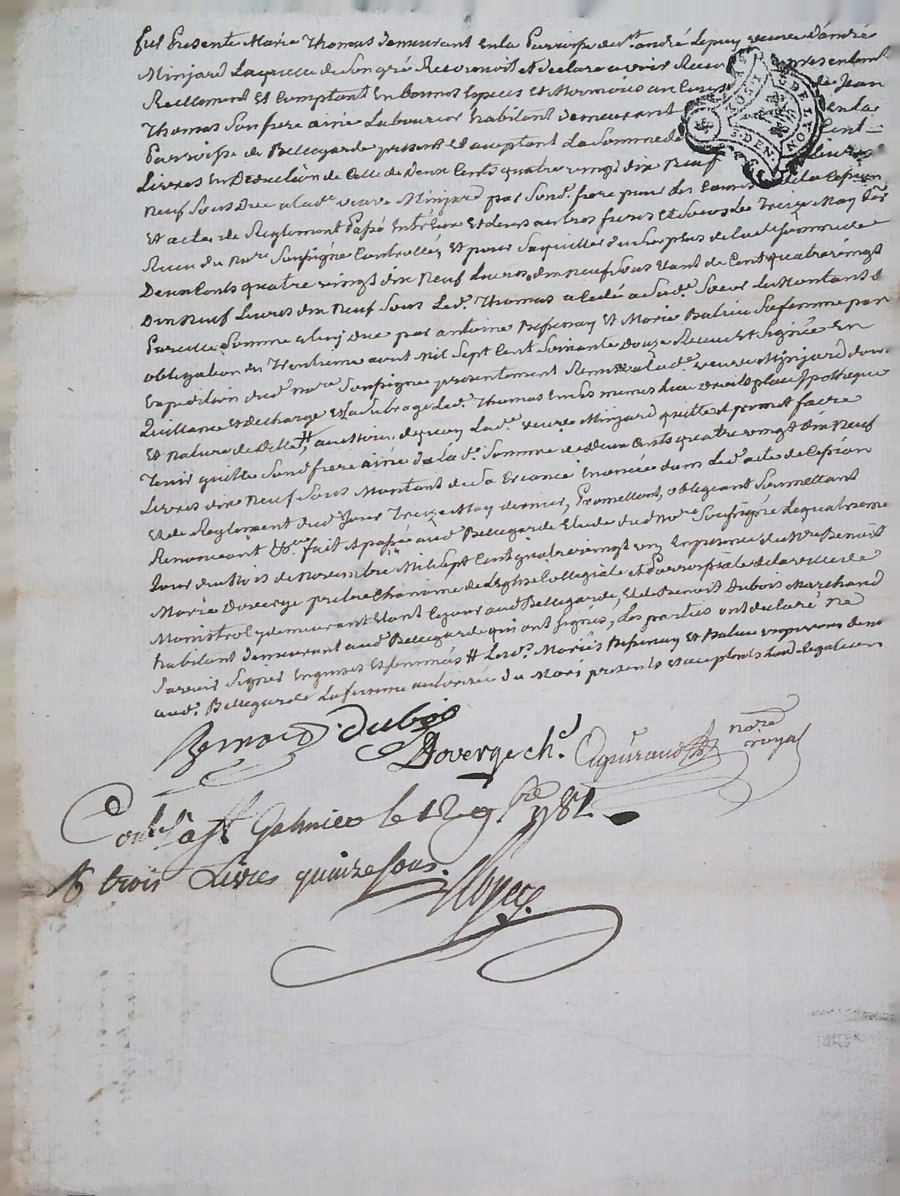 fut Presente Marie Thomas demeurant en la Parroisse de St andré Lepuy veuve d'andré
Minjard Laquelle de Son gré Reconnoit et declare avoir Recu presentement
Reellement Et Comptant En bonnes Especes Et de Jean
Thomas Son frere ainé Laboureur habitant demeurant en la
Parroisse de Bellegarde present Et aceptant La Somme de Cent
Livres En Deduction de Celle de Deux Cents quatre vingt dix Neuf Livres
Neuf Sous Due a lad. veuve Minjard par Sond. frere pour les Causes de la Cession
Et acte de Reglement Passé Entr'Eux Et leurs autres freres Et Soeurs Le Treize May der
Recu du Nore Soussigné Controllée, Et pour Sacquitter du Surplus de lad. Somme de
Deux Cents quatre vingt dix Neuf Livres dix neuf Sous Etant de Cent quatre vingt
Dix Neuf Livres dix Neuf Sous Led. Thomas a Cedé a Sad. Soeur Le Montant de
Pareille Somme a luy Due par antoine Bessenay Et Marie Balue Sa femme par
obligation du Trentieme aout Mil Sept Cent Soixante Douze Recue Et Signée En
Expedition dud. nore Soussigné presentement Remise a lad. veuve Minjard dont
Quittance Et decharge Et la Subroge led. Thomas En Ses mains Lieu droits place hypotheque
Et Nature de dette, au Moien dequoy Lad. veuve Minjard quitte et promet faire
Tenir quitte Sond. frere ainé de la d. Somme de Deux Cents quatre vingt dix Neuf
Livres dix Neuf Sous Montant de Sa Creance Enoncée dans Led. acte de Cession
Et de Reglement dud. Jour Treize May dernier, Promettant, obligeant Soumettant
Renonceant &c. fait Et passé aud. Bellegarde Etude dud. Nore Soussigné Le quatrieme
Jour du Mois de Novembre Mil Sept Cent quatre vingt un En presence de Mre Benoit
Marie Doverge prêtre Chanoine de L'Eglise Collegiale et Parroissiale de la ville de
Monistrol y demeurant Etant Ce jour aud. Bellegarde, Et de Benoit Dubois Marchand
habitant demeurant aud. Bellegarde qui ont Signés, Les parties ont declaré Ne
Savoir Signer Enquises Et Sommées # Lesd. Mariés Bessenay Et Balue vignerons de
aud. Bellegarde La femme autorisée du Mari presents Et aceptants
Dubois
Doverge ch. nore
royal
Contlé a St Galmier le 12 9bre 1781.
R trois Livres quinze sous.
DE LYON